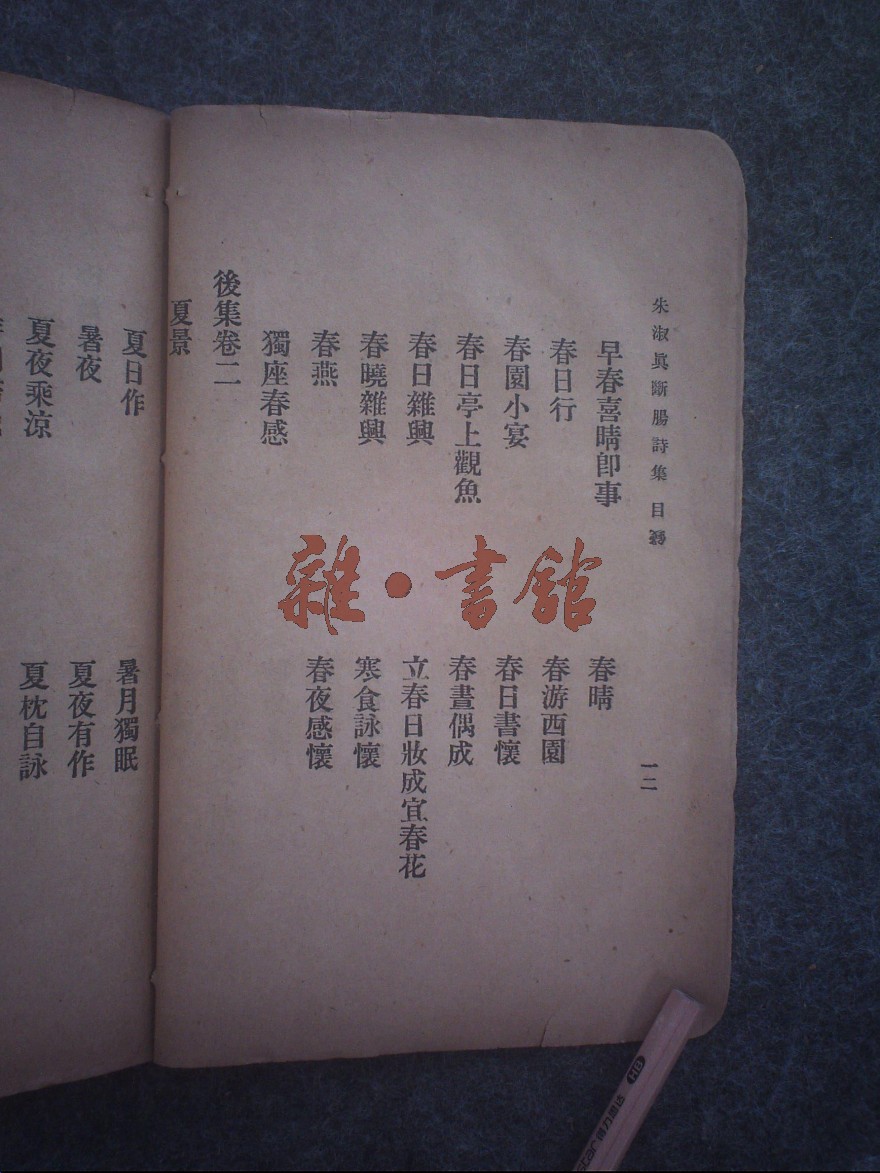 朱淑眞斷腸詩集 目錄
一二
早春喜晴卽事
春晴
春日行
春游西園
春園小宴
春日書懷
春日亭上觀魚
春晝偶成
春日雜興
立春日妝成宜春花
春曉雜興
寒食詠懷
春燕
春夜感懷
獨座春感
後集卷二
夏景
夏日作
暑月獨眠
暑夜
夏夜有作
夏夜乘涼
夏枕自詠
雜·書館
HB